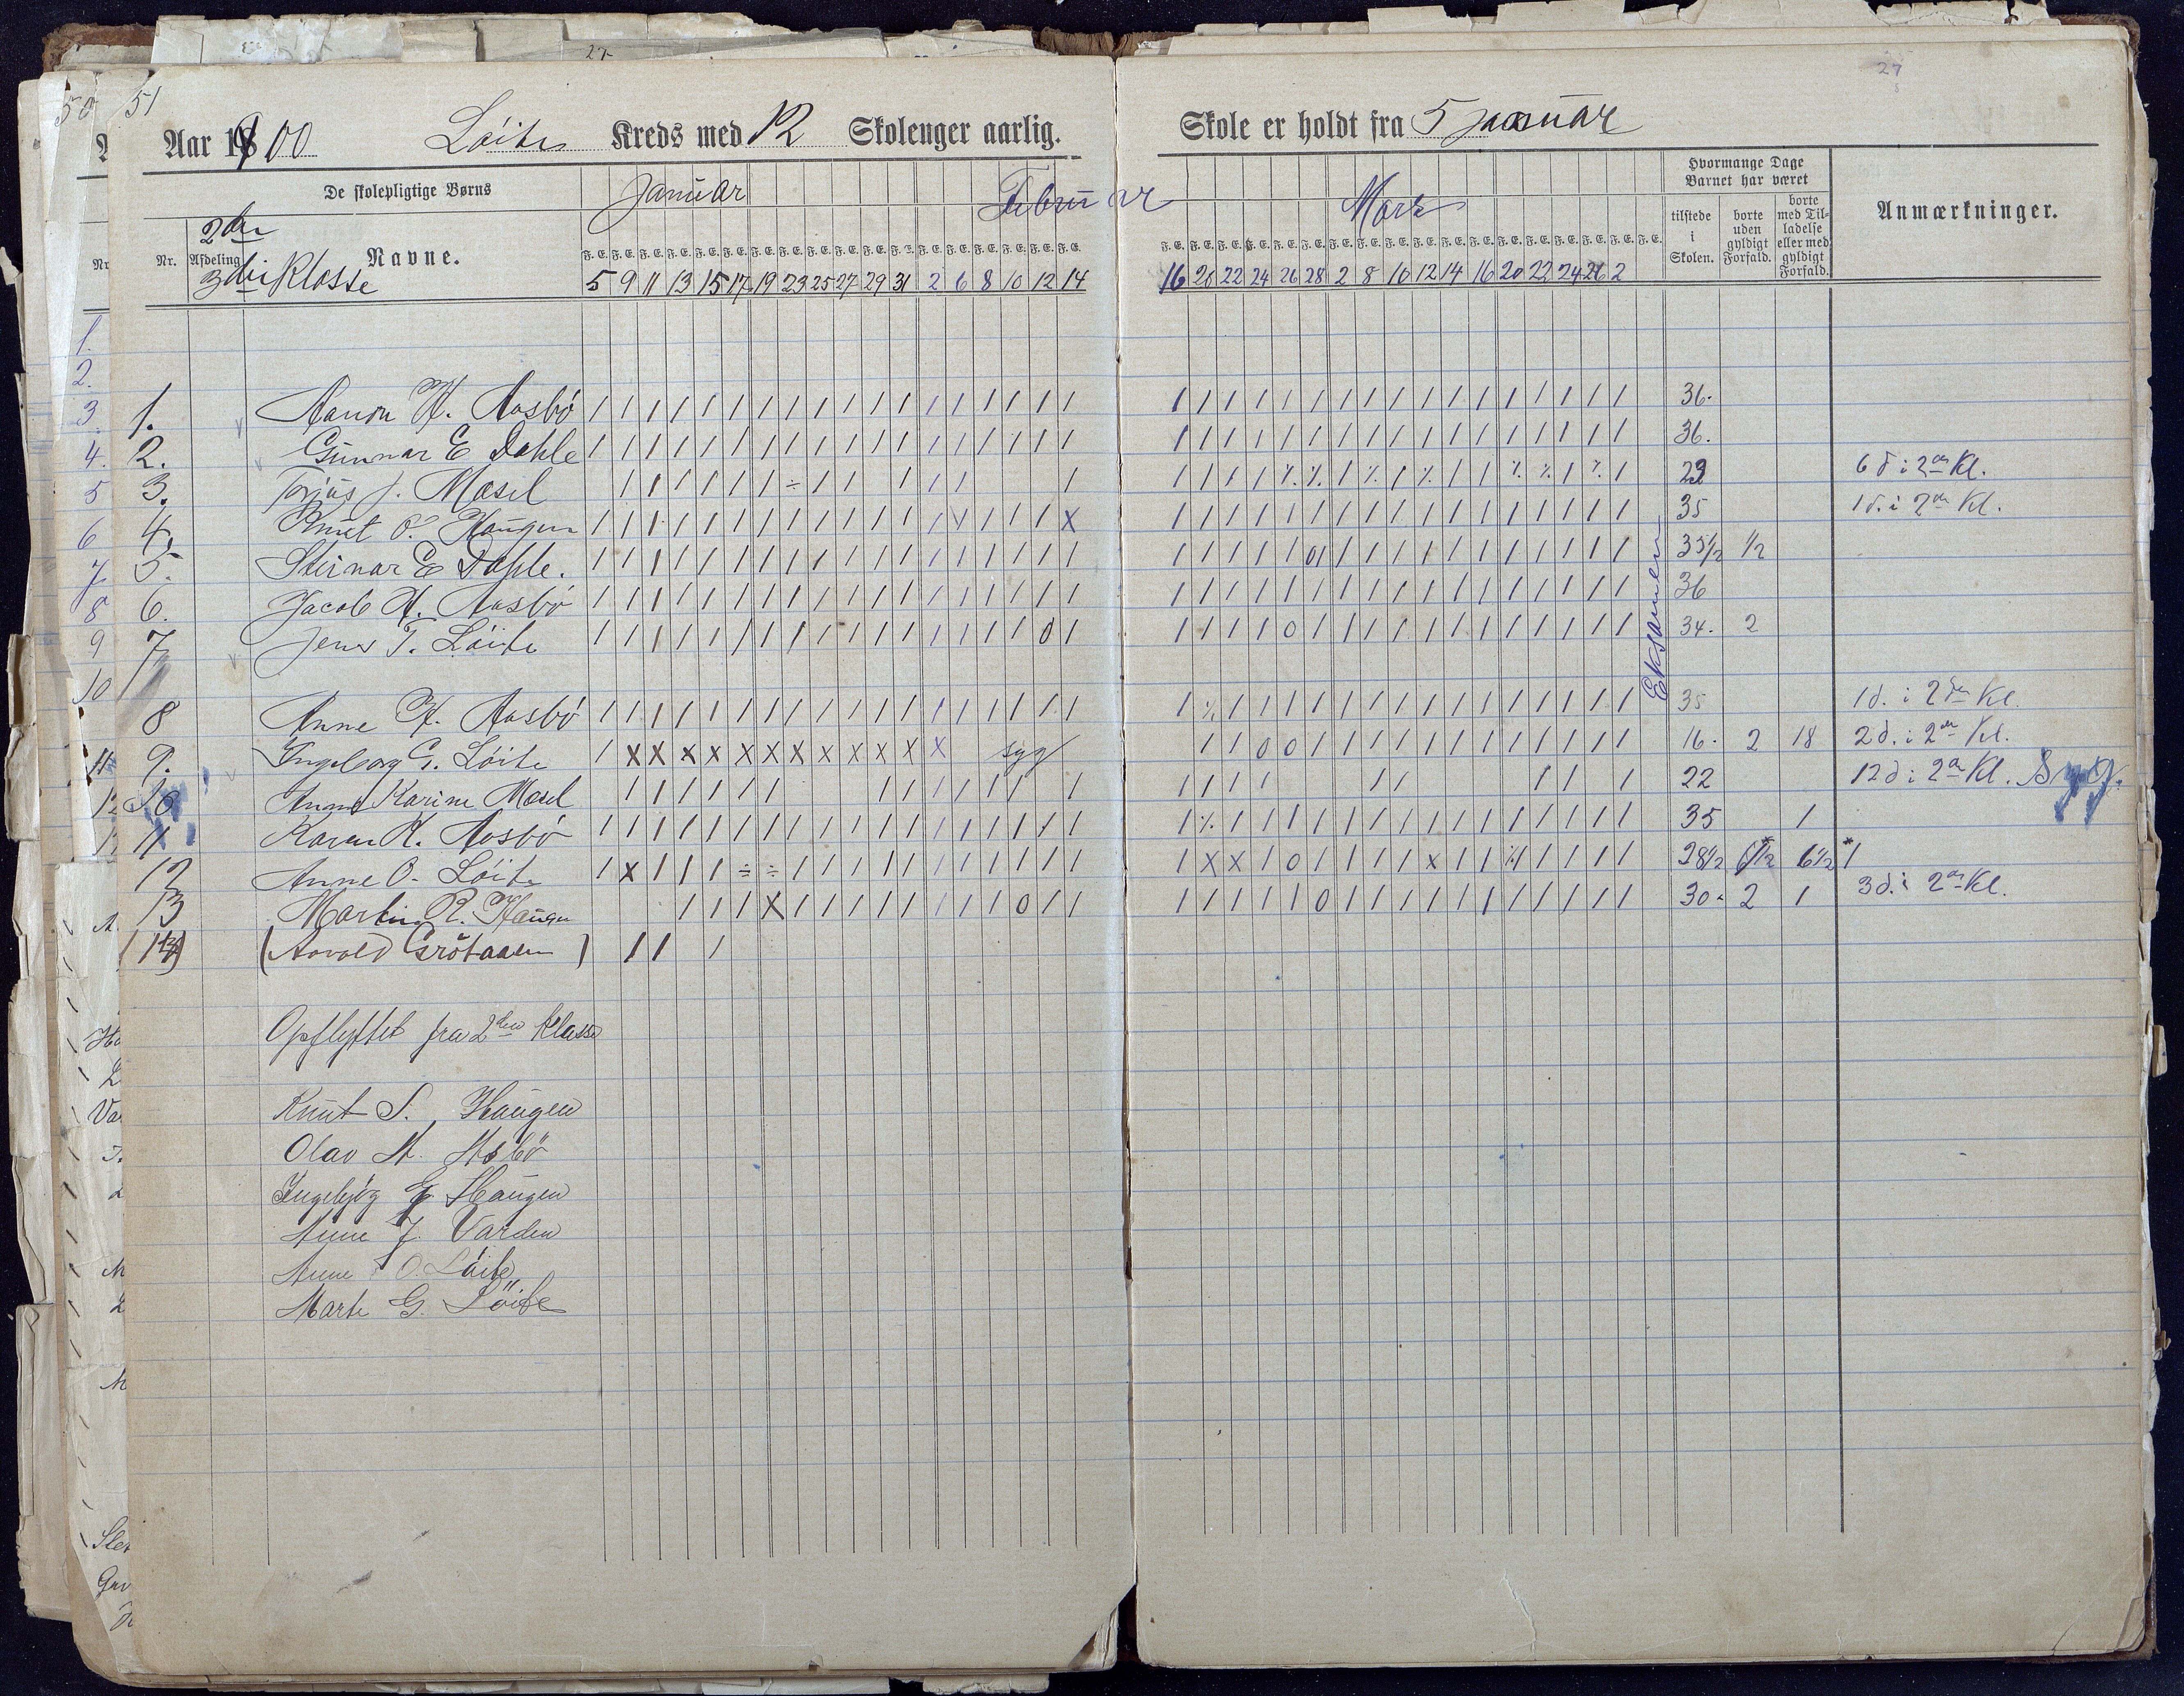 27
51
Aar 1900 Löite Kreds med 12 Skolenger aarlig. Skole er holdt fra 5 januar
De skolepligtige Børns Januar Februar Mars Hvormange Dage Barnet har været Anmærkninger.
Nr. Afdeling Navne. tilstede i Skolen. borte uden gyldigt Forfald. borte med Tilladelse eller med gyldigt Forfald.
2den
3die Klasse
5 9 11 13 15 17 19 23 25 27 29 31 2 6 8 10 12 14 16 20 22 24 26 28 2 8 10 12 14 16 20 22 24 26 2
Eksamen
1. Aanon H. Aasbö 36.
2. Gunnar E Dahle 36.
3. Torjus J. Mosel 29 6 d i 2den Kl.
4. Knut O. Haugen 35 1 d. i 2den Kl.
5. Steinar E Dahle. 35½ ½
6. Jacob H. Aasbö 36
7 Jens T. Löite 34. 2
8 Anne H. Aasbö 35 1 d. i 2den Kl.
9. Ingeborg G. Löite syg 16. 2 18 2 d. i 2den Kl.
10 Anne Karine Mosel 22 12 d i 2den Kl. Syg.
11 Karen K. Aasbö 35 1
12 Anne O. Löite 28½ 6½
13 Martin R. Haugen 30. 2 1 3 d. i 2den Kl.
(14) (Aavold Grötaasen)
Opflyttet fra 2den Klasse
Knut S. Haugen
Olav H. Asbö
Ingebjög G. Haugen
Anne J. Varden
Anne O. Löite
Marte G. Löite